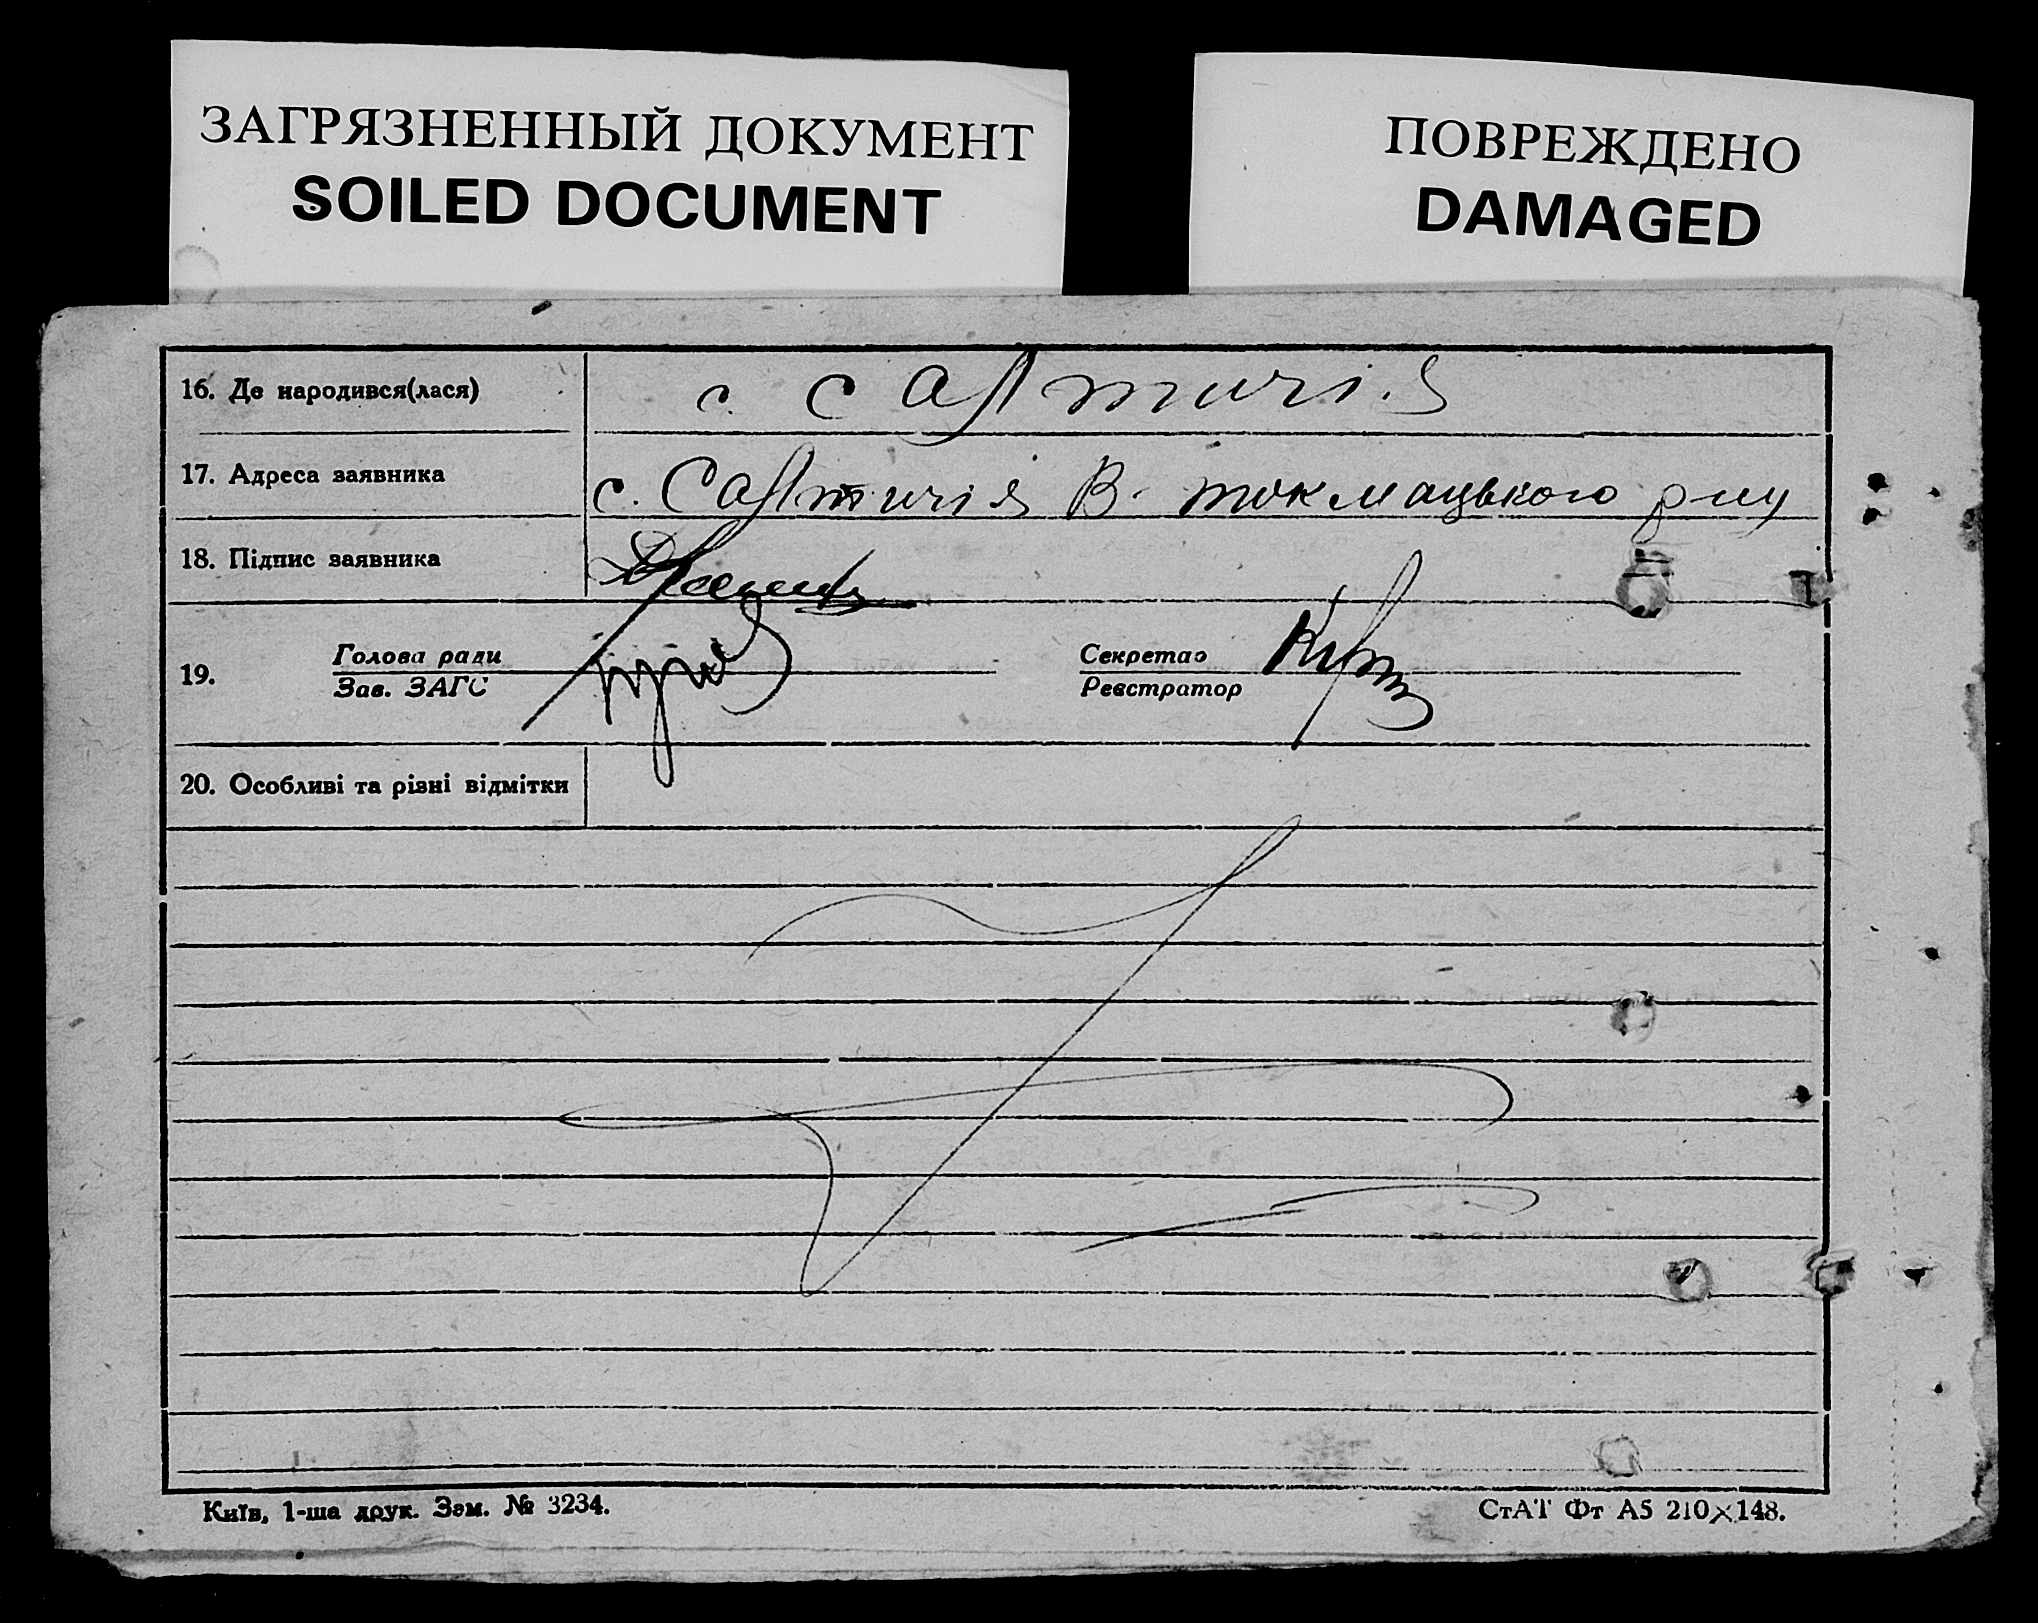 ЗАГРЯЗНЕННЫЙ ДОКУМЕНТ
SOILED DOCUMENT
ПОВРЕЖДЕНО
DAMAGED
16. Де народився(лася) с. Салтичія
17. Адреса заявника с. Салтичія В. токмацького р-ну
18. Підпис заявника
19. Голова ради
Зав. ЗАГС
Секретар
Реєстратор
20. Особливі та різні відмітки
Київ, 1-ша друк. Зам. № 3234.
СтАТ Фт А5 210×148.